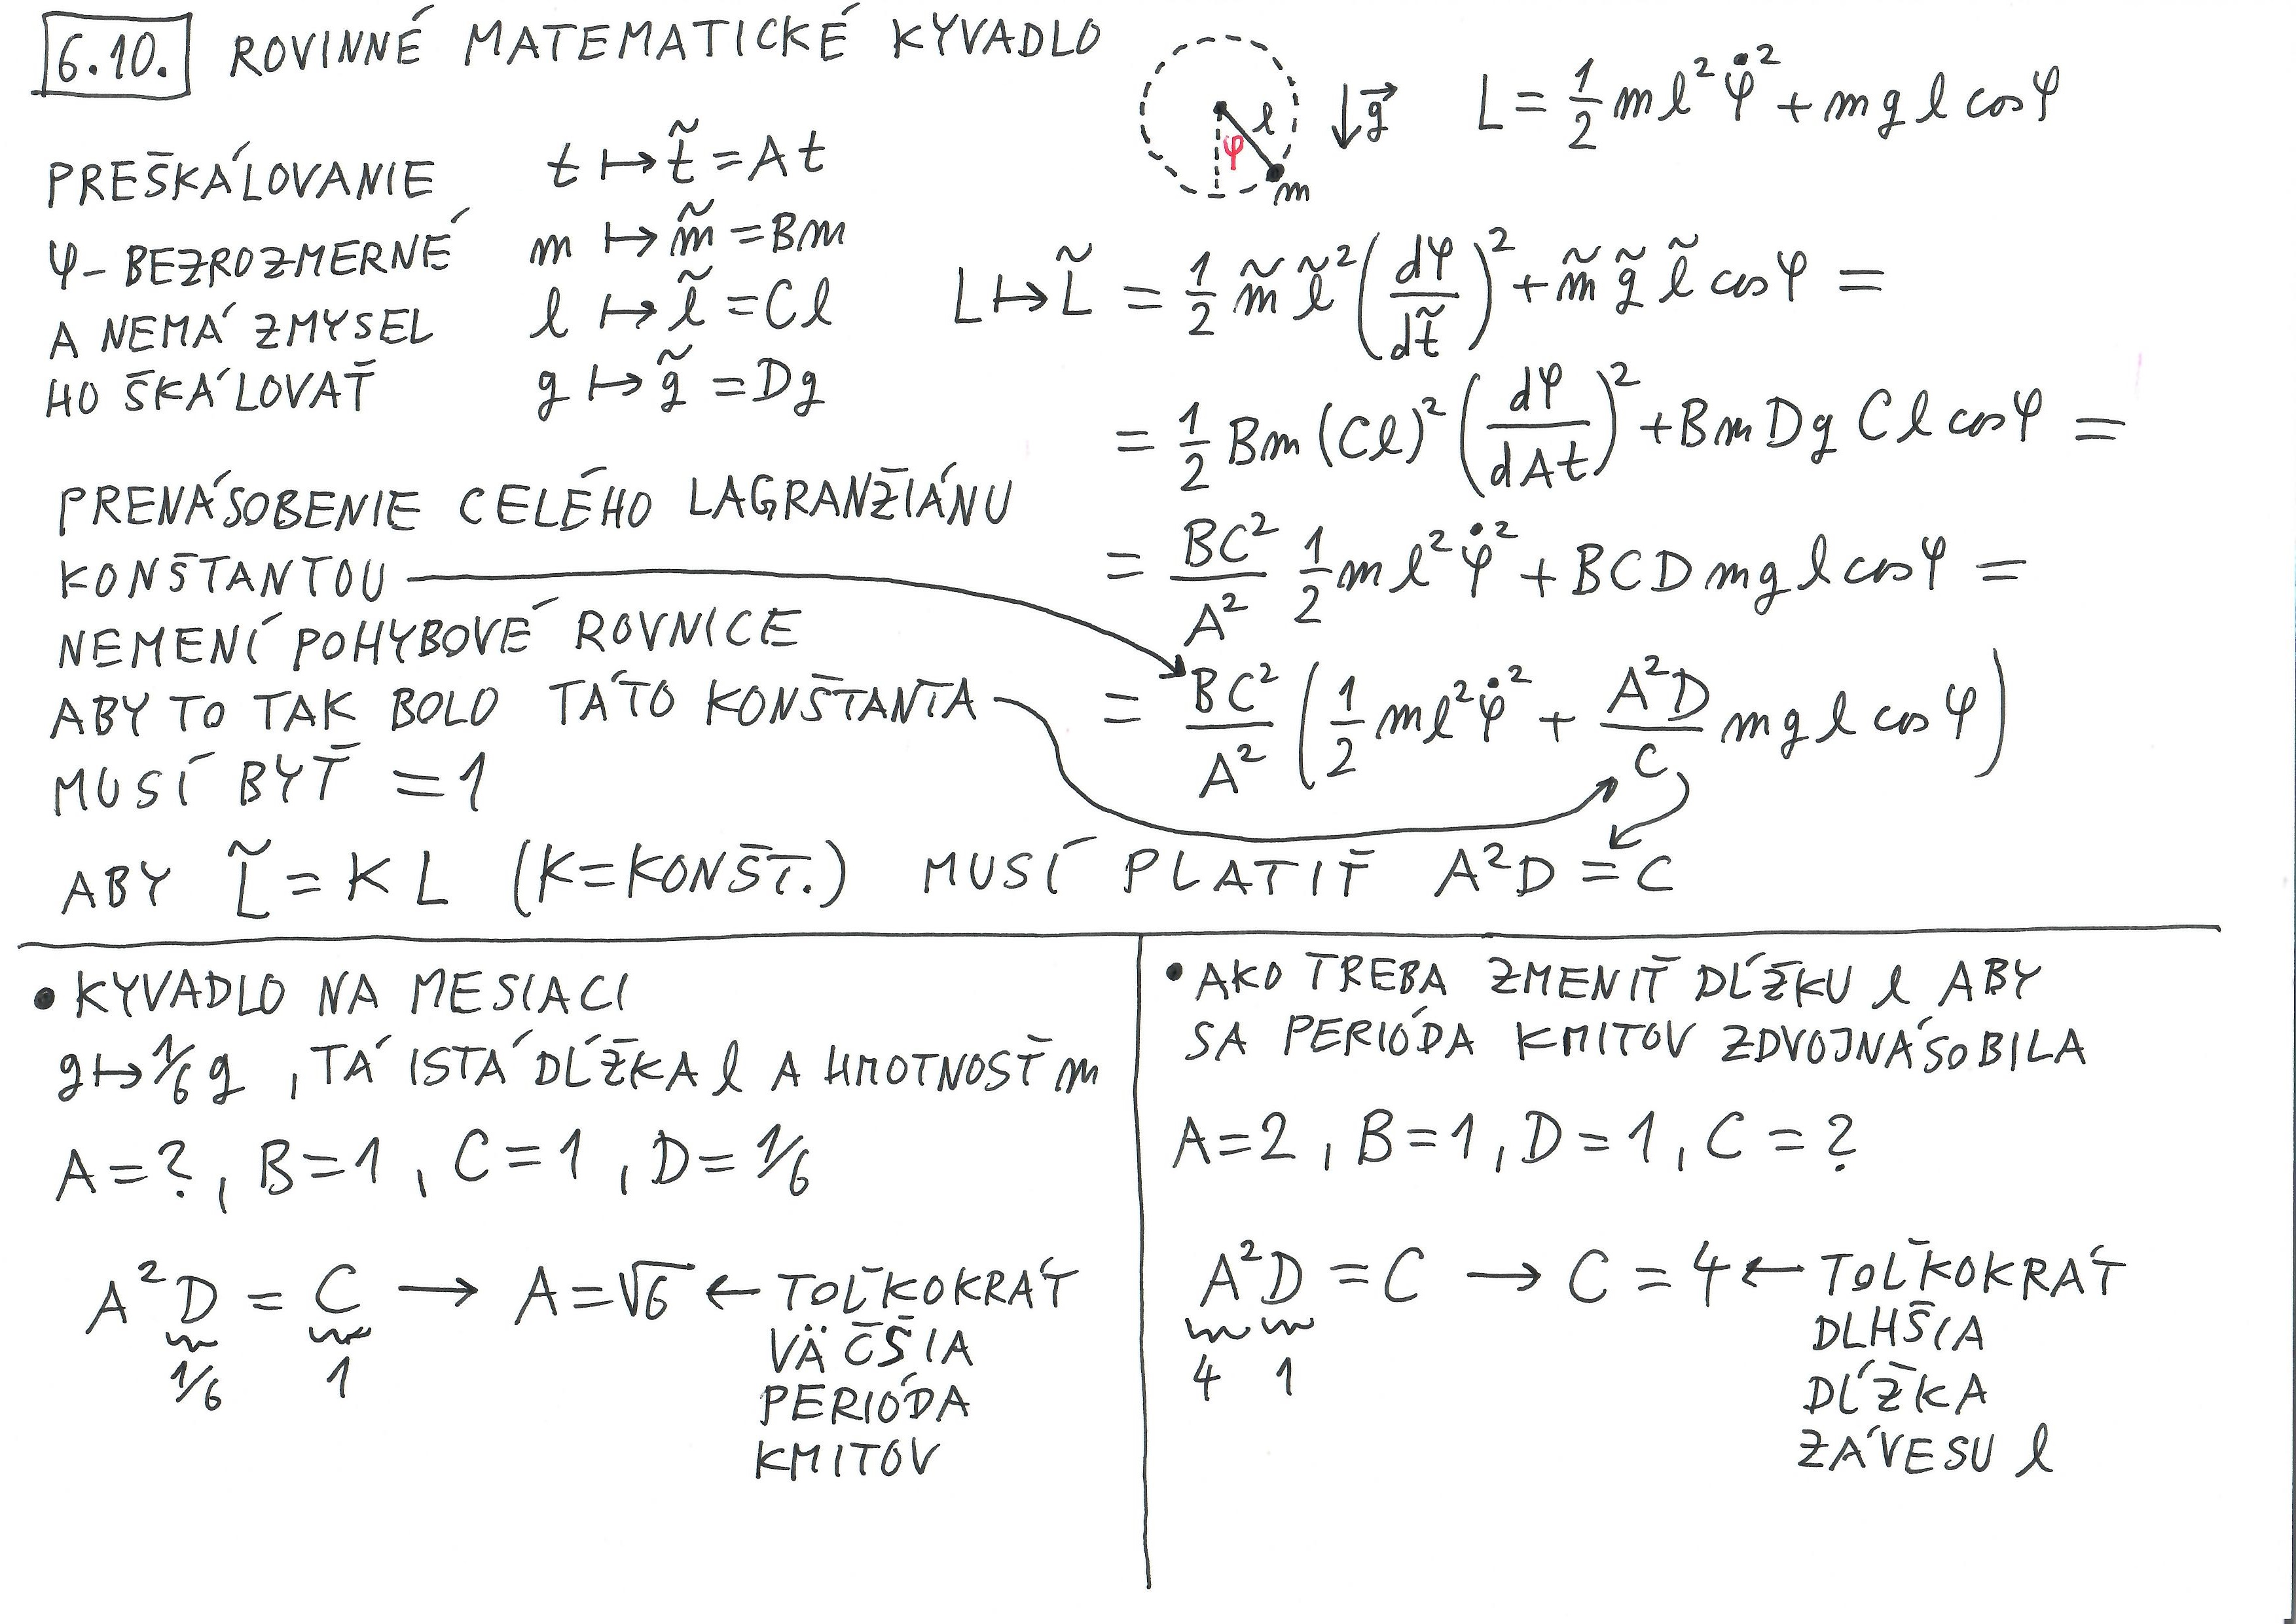 6.10. ROVINNÉ MATEMATICKÉ KYVADLO
l
φ
m
↓g⃗
L = 1/2 m l² φ̇² + m g l cos φ
PREŠKÁLOVANIE
φ – BEZROZMERNÉ
A NEMÁ ZMYSEL
HO ŠKÁLOVAŤ
t ↦ t̃ = At
m ↦ m̃ = Bm
l ↦ l̃ = Cl
g ↦ g̃ = Dg
L ↦ L̃ = 1/2 m̃ l̃² (dφ/dt̃)² + m̃ g̃ l̃ cos φ =
= 1/2 Bm (Cl)² (dφ/dAt)² + Bm Dg Cl cos φ =
= BC²/A² 1/2 m l² φ̇² + BCD m g l cos φ =
= BC²/A² (1/2 m l² φ̇² + A²D/C m g l cos φ)
PRENÁSOBENIE CELÉHO LAGRANŽIÁNU
KONŠTANTOU
NEMENÍ POHYBOVÉ ROVNICE
ABY TO TAK BOLO TÁTO KONŠTANTA
MUSÍ BYŤ = 1
ABY L̃ = K L (K = KONŠT.) MUSÍ PLATIŤ A²D = C
• KYVADLO NA MESIACI
g ↦ 1/6 g , TÁ ISTÁ DĹŽKA l A HMOTNOSŤ m
A = ? , B = 1 , C = 1 , D = 1/6
A² D = C → A = √6 ← TOĽKOKRÁT
1/6 1
VÄČŠIA
PERIÓDA
KMITOV
• AKO TREBA ZMENIŤ DĹŽKU l ABY
SA PERIÓDA KMITOV ZDVOJNÁSOBILA
A = 2 , B = 1 , D = 1 , C = ?
A² D = C → C = 4 ← TOĽKOKRÁT
4 1
DLHŠIA
DĹŽKA
ZÁVESU l